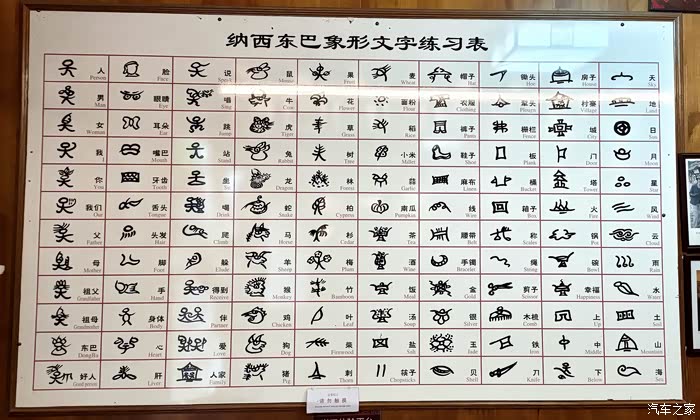 纳西东巴象形文字练习表
人 脸 说 鼠 果 麦 帽子 锄头 房子 天
Person Face Speak Mouse Fruit Wheat Hat Hoe House Sky
男 眼睛 唱 牛 花 面粉 衣服 犁头 村寨 地
Man Eye Sing Cow Flower Flour Clothing Plough Village Land
女 耳朵 跳 虎 草 稻 裤子 栅栏 城 日
Woman Ear Jump Tiger Grass Rice Pants Fence City Sun
我 嘴巴 站 兔 树 小米 鞋子 板 门 月
I Mouth Stand Rabbit Tree Millet Shoe Plank Door Moon
你 牙齿 坐 龙 林 蒜 麻布 桶 塔 星
You Teeth Sit Dragon Forest Garlic Linen Bucket Tower Star
我们 舌头 喝 蛇 柏 南瓜 线 箱子 火 风
Our Tongue Drink Snake Cypress Pumpkin Line Box Fire Wind
父 头发 爬 马 杉 茶 腰带 称 锅 云
Father Hair Climb Horse Cedar Tea Belt Scales Pot Cloud
母 脚 躲 羊 梅 酒 手镯 绳 碗 雨
Mother Foot Elude Sheep Plum Wine Bracelet Strong Bowl Rain
祖父 手 得到 猴 竹 饭 金 剪子 幸福 水
Grandfather Hand Receive Monkey Bamboom Meal Gold Scissor Happiness Water
祖母 身体 伴 鸡 叶 汤 银 木梳 上 土
Grandmother Body Partner Chicken Leaf Soup Silver Comb Up Soil
东巴 心 爱 狗 柴 盐 玉 铁 中 山
DongBa Heart Love Dog Firewood Salt Jade Iron Middle Mountain
好人 肝 人家 猪 刺 筷子 贝 刀 下 海
Good person Liver Family Pig Thorn Chopsticks Shell Knife Below Sea
请勿触摸
汽车之家